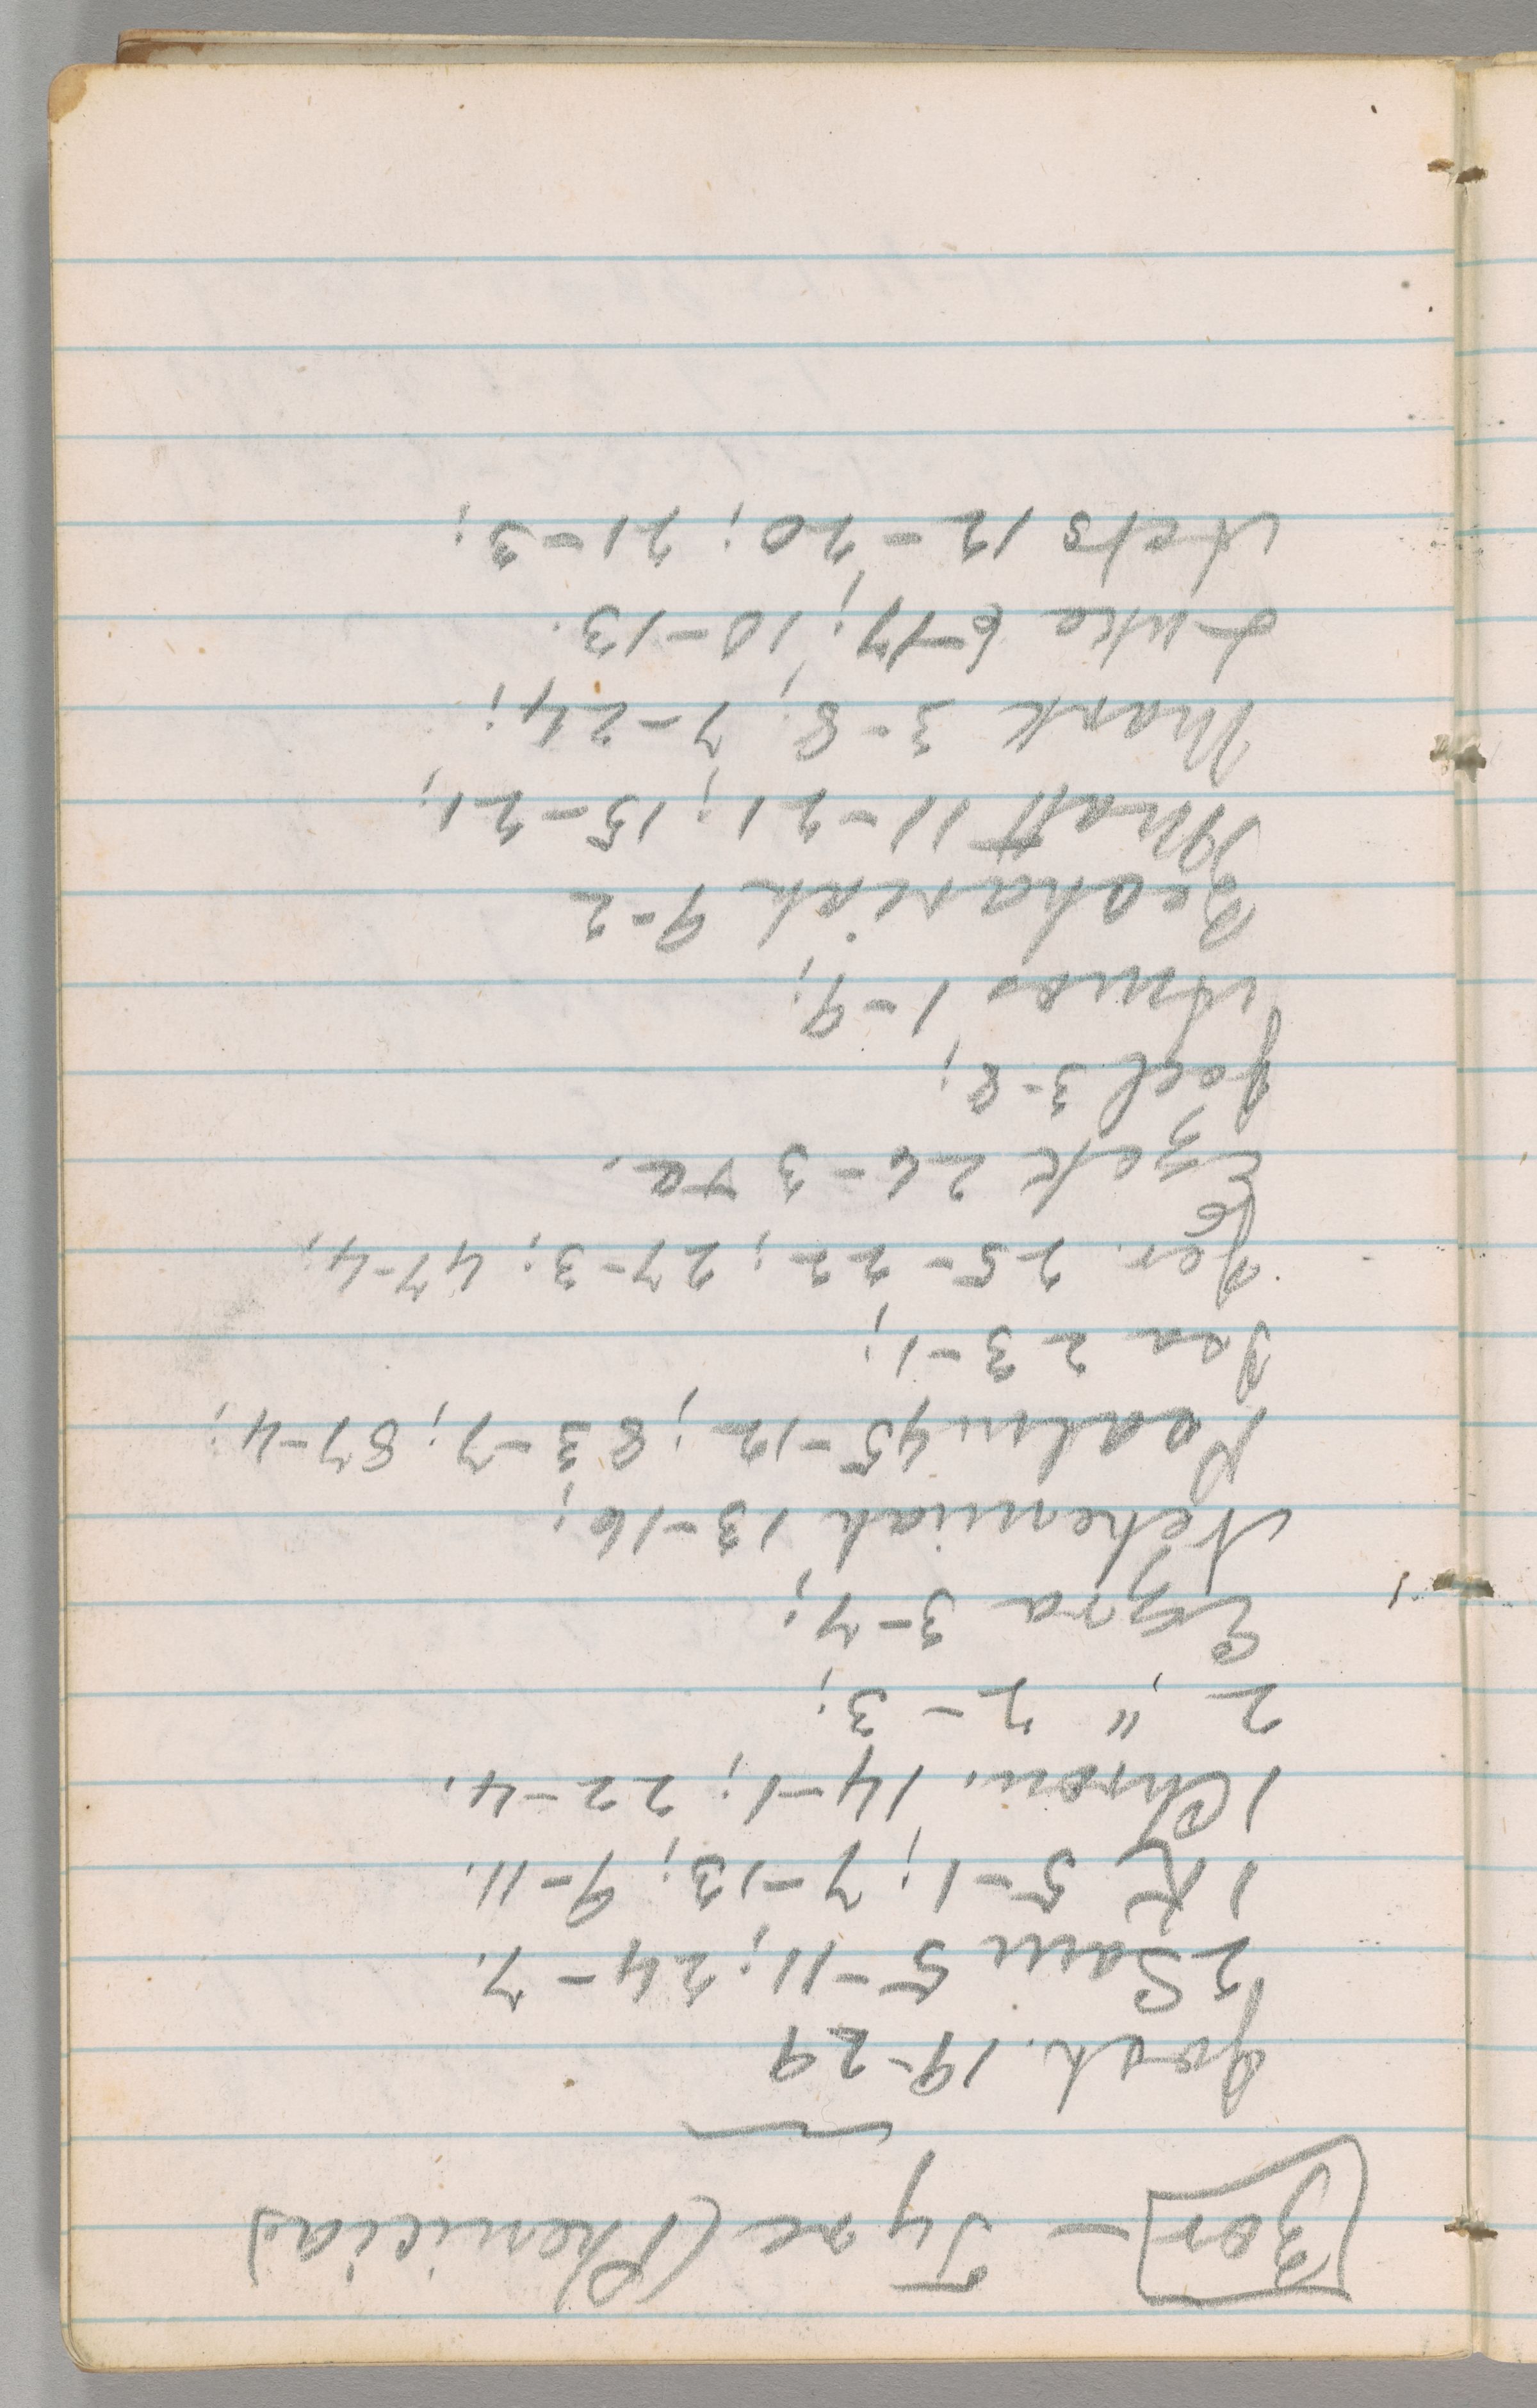 Zor - Tyre (Phenicia)
Josh. 19-29
2 Sam 5-11; 24-7.
1 K 5-1; 7-13; 9-11.
1 Chron. 14-1; 22-4.
2 " 2-3;
Ezra 3-7;
Nehemiah 13-16;
Psalm 45-12; 83-7; 87-4;
Isa 23-1;
Jer. 25-22; 27-3; 47-4;
Ezek 26-3
Joel 3-8;
Amos 1-9;
Zechariah 9-2
Matt 11-21; 15-21;
Mark 3-8; 7-24;
Luke 6-17; 10-13.
Acts 12-20; 21-3;